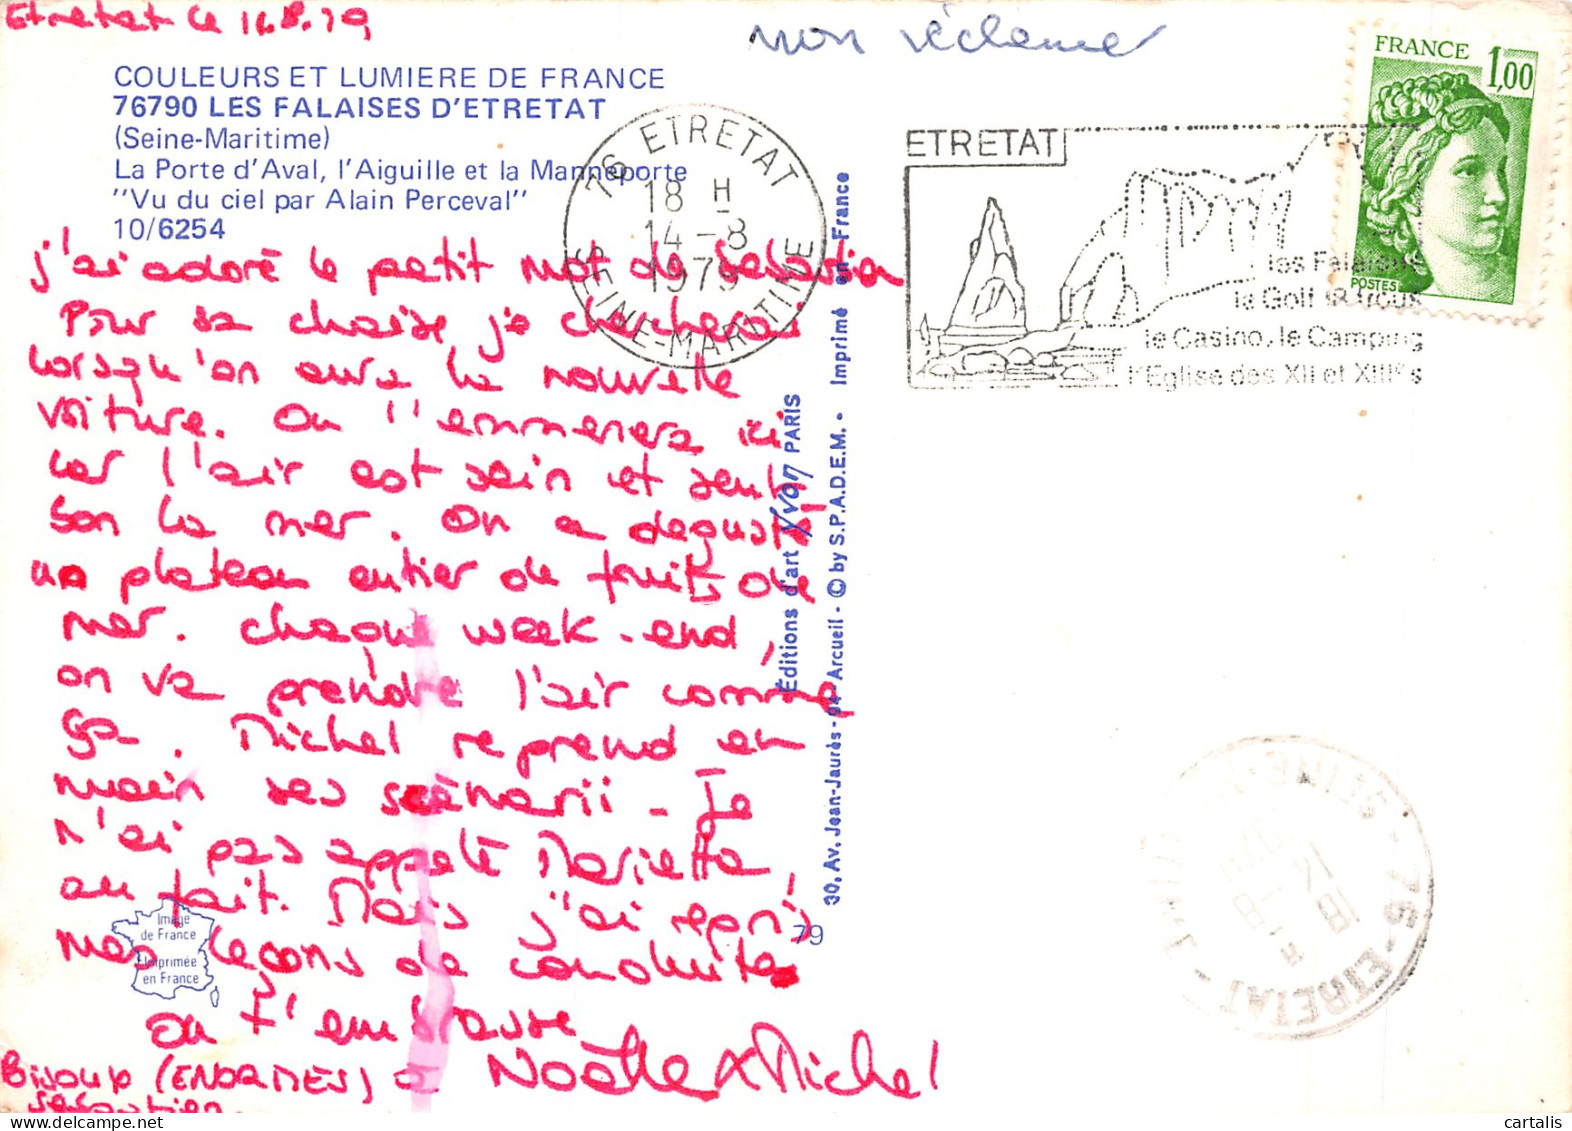 Etretat le 14.8.79
non réclamé
COULEURS ET LUMIERE DE FRANCE
76790 LES FALAISES D'ETRETAT
(Seine-Maritime)
La Porte d'Aval, l'Aiguille et la Manneporte
"Vu du ciel par Alain Perceval"
10/6254
j'ai adoré le petit mot de Sébastien
Pour sa chaise, je chercherai
lorsqu'on aura la nouvelle
voiture. On l'emmenera ici
car l'air est sain et sent
bon la mer. On a degusté
un plateau entier de fruits de
mer. Chaque week-end,
on va prendre l'air comme
ça. Michel reprend en
main ses scénarii - Je
n'ai pas appelé Marietta,
au fait. Mais j'ai repris
mes leçons de conduite
On t'embrasse
Noëlle & Michel
Bisoux (ENORMES) à
Sébastien
Image
de France
Imprimée
en France
79
Editions d'art Yvon PARIS
30, Av. Jean-Jaurès - 94 Arcueil - © by S.P.A.D.E.M. • Imprimé en France
76 ETRETAT
18 H
14-8
1979
SEINE-MARITIME
ETRETAT
les Falaises
le Golf 18 trous
le Casino, le Camping
l'Eglise des XII et XIIIe s
FRANCE 1,00
POSTES
76-ETRETAT
18 H
cartalis
delcampe.net